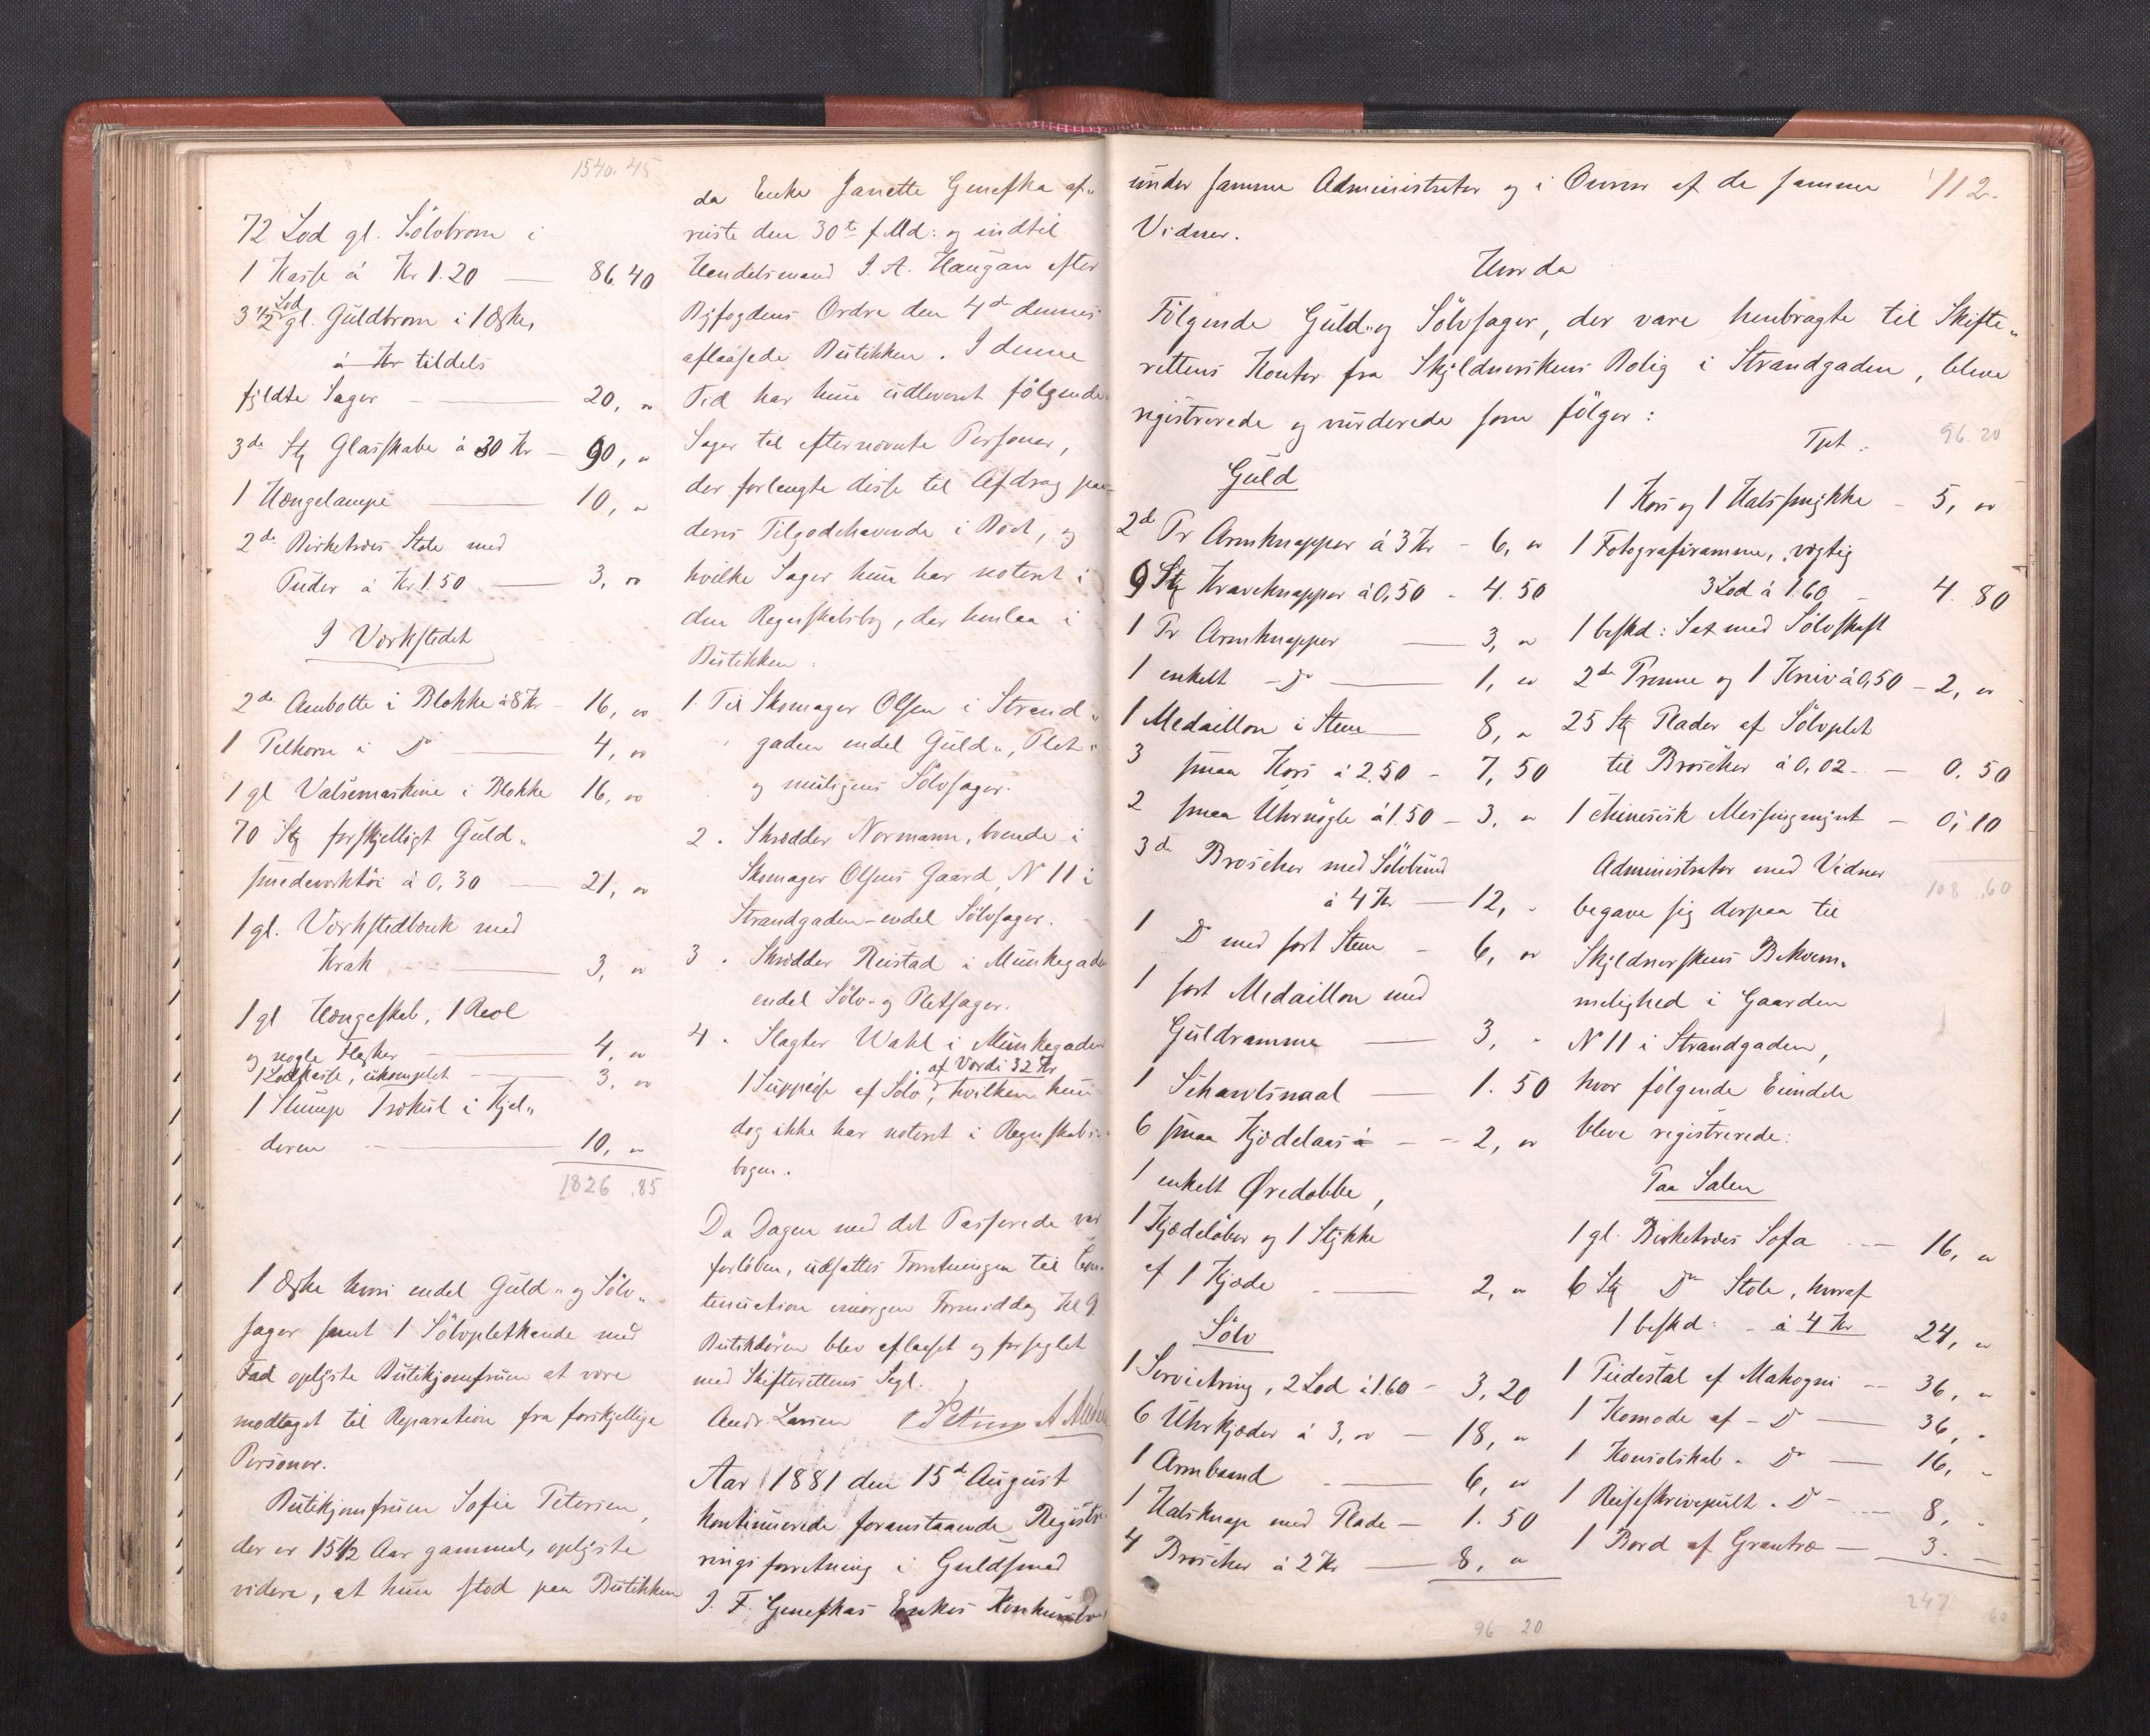 1540. 45
72 Lod gl. Sölvbrom i
1 Kasse á Kr 1.20 — 86.40
3 1/2 Lod gl. Guldbrom i 1 Æske,
á Kr tildels
fyldte Sager — 20, "
3de Stk Glasskabe á 30 Kr — 90, "
1 Hængelampe — 10, "
2de Birketræs Stole med
Puder á Kr 1.50 — 3, "
I Værkstedet
2de Ambolte i Blokke á 8 Kr — 16, "
1 Pelhorn i Do — 4, "
1 gl Valsemaskine i Blokke 16, "
70 Stk forskjelligt Guld"
smedværktöi á 0,30 — 21, "
1 gl. Værkstedbænk med
Krak — 3, "
1 gl Hængeskab, 1 Reol
og nogle Flasker — 4, "
1 Lodkasse, ukomplet — 3, "
1 Slump Trækul i Kjel"
deren — 10, "
1826 .85
1 Æske hvori endel Guld" og Sölv"
sager samt 1 Sölvpletkande med
Fad oplyste Butikjomfruen at være
modtaget til Reparation fra forskjellige
Personer.
Butikjomfruen Sofie Petersen,
der er 15 1/2 Aar gammel, oplyste
videre, at hun stod paa Butikken
da Enke Janette Genefka af"
reiste den 30te f. Md: og indtil
Handelsmand J. A. Haugan efter
Byfogdens Ordre den 4de dennes
aflaasede Butikken. I denne
Tid har hun udleveret fölgende
Sager til efternævnte Personer,
der forlangte disse til Afdrag paa
deres Tilgodehavende i Boet, og
hvilke Sager hun har noteret i
den Regnskabsbog, der henlaa i
Butikken:
1. Til Skomager Olsen i Strand"
gaden endel Guld", Plet"
og muligens Sölvsager.
2. Skrædder Normann, boende i
Skomager Olsens Gaard, N 11 i
Strandgaden – endel Sölvsager.
3. Skrædder Reistad i Munkegaden
endel Sölv- og Pletsager.
4. Slagter Wahl i Munkegaden
1 Suppeöse af Sölv, af Værdi 32 Kr hvilken hun
dog ikke har noteret i Regnskabs"
bogen.
Da Dagen med det Passerede var
forløben, udsattes Forretningen til Con"
tinuation imorgen Formiddag Kl 9
Butikdören blev aflaaset og forseglet
med Skifterettens Segl.
Andr. Larsen
Aar 1881 den 15de August
kontinuerede foranstaaende Registre"
ringsforretning i Guldsmed
J. F. Genefkas Enkes Konkursbo
under samme Administrator og i Overvær af de samme 112.
Vidner.
Hvorda
Fölgende Guld- og Sölvsager, der vare henbragte til Skifte"
rettens Kontor fra Skyldnerskens Bolig i Strandgaden, bleve
registrerede og vurderede som fölger:
Guld
2de Pr Armknapper á 3 Kr — 6, "
9 Stk Kraveknapper á 0,50 — 4.50
1 Pr Armknapper — 3, "
1 enkelt Do — 1, "
1 Medaillon i Steen — 8, "
3 smaa Kors á 2.50 — 7,50
2 smaa Uhrnögle á 1.50 — 3, "
3de Broscher med Sölvbund
á 4 Kr — 12, "
1 Do med sort Steen — 6, "
1 sort Medaillon med
Guldramme — 3, "
1 Schawlsnaal — 1.50
6 smaa Kjædelaas á — 2, "
1 enkelt Øredobbe,
1 Kjædelöber og 1 Stykke
af 1 Kjæde — 2, "
Sölv
1 Servietring, 2 Lod á 1.60 — 3,20
6 Uhrkjæder á 3, " — 18, "
1 Armbaand — 6, "
1 Halsknap med Plade — 1.50
4 Broscher á 2 Kr — 8, "
96 20
Tpt: 96.20
1 Kors og 1 Halssmykke — 5, "
1 Fotografiramme, vægtig
3 Lod á 1.60 — 4.80
1 beskd: Sax med Sölvskaft
2de Prenne og 1 Kniv á 0,50 — 2, "
25 Stk Plader af Sölvplet
til Broscher á 0,02 — 0.50
1 chinesisk Messingmynt — 0,10
108 .60
Administrator med Vidner
begave sig derpaa til
Skyldnerskens Bekvem"
melighed i Gaarden
N 11 i Strandgaden,
hvor fölgende Eiendele
bleve registrerede:
Paa Salen
1 gl. Birketræs Sofa — 16, "
6 Stk Do Stole, hvoraf
1 beskd: á 4 Kr 24, "
1 Piedestal af Mahogni — 36, "
1 Komode af Do — 36, "
1 Konsolskab " Do — 16, "
1 Reiseskrivepult " Do — 8, "
1 Bord af Grantræ — 3. "
247 60